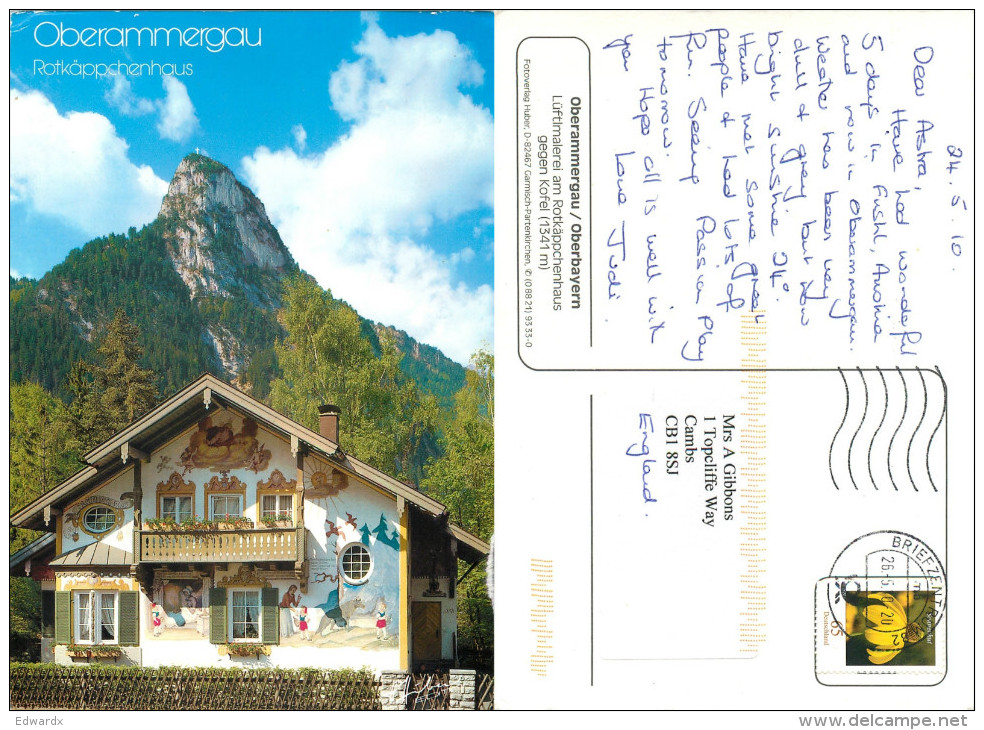 Oberammergau
Rotkäppchenhaus
24. 5. 10.
Dear Astra,
Have had wonderful
5 days in Fuschl, Austria
and now in Oberammergau.
Weather has been very
dull & grey but now
bright sunshine 24°.
Have met some great
people & had lots of
fun. Seeing Passion Play
tomorrow.
Hope all is well with
you Love Judi
Oberammergau / Oberbayern
Lüftlmalerei am Rotkäppchenhaus
gegen Kofel (1341 m)
Fotoverlag Huber, D-82467 Garmisch-Partenkirchen, ✆ (0 88 21) 93 33-0
Mrs A Gibbons
1 Topcliffe Way
Cambs
CB1 8SJ
England.
BRIEFZENT
26.5.
65
Deutschland
Edwardx
delcampe.net